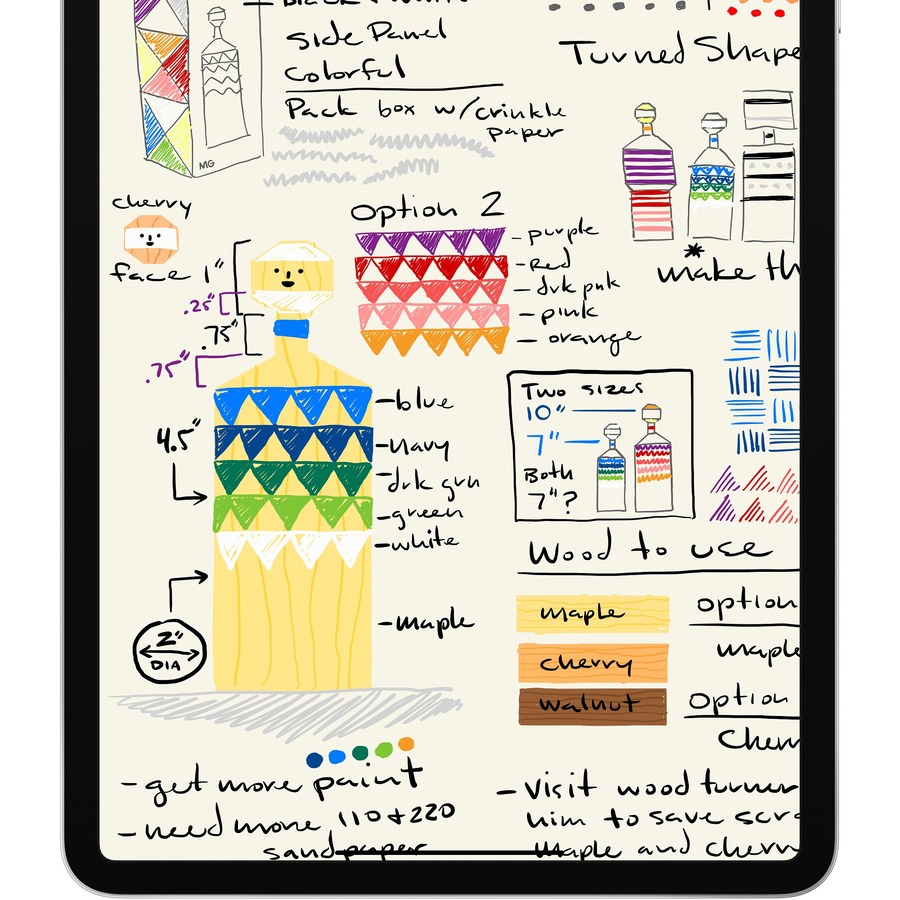 Side Panel
Colorful
Pack box w/crinkle
paper
MG
Turned Shape
cherry
face
1"
.25"
.75"
.75"
4.5"
2"
DIA
Option 2
- purple
- Red
- drk pnk
- pink
- orange
make th
- blue
- Navy
- drk grn
- green
- white
- maple
Two sizes
10"
7"
Both
7"?
Wood to use
maple
cherry
walnut
option
maple
Option
Cherr
- get more paint
- need more 110 + 220
sandpaper
- Visit wood turner
him to save scra
maple and cherry